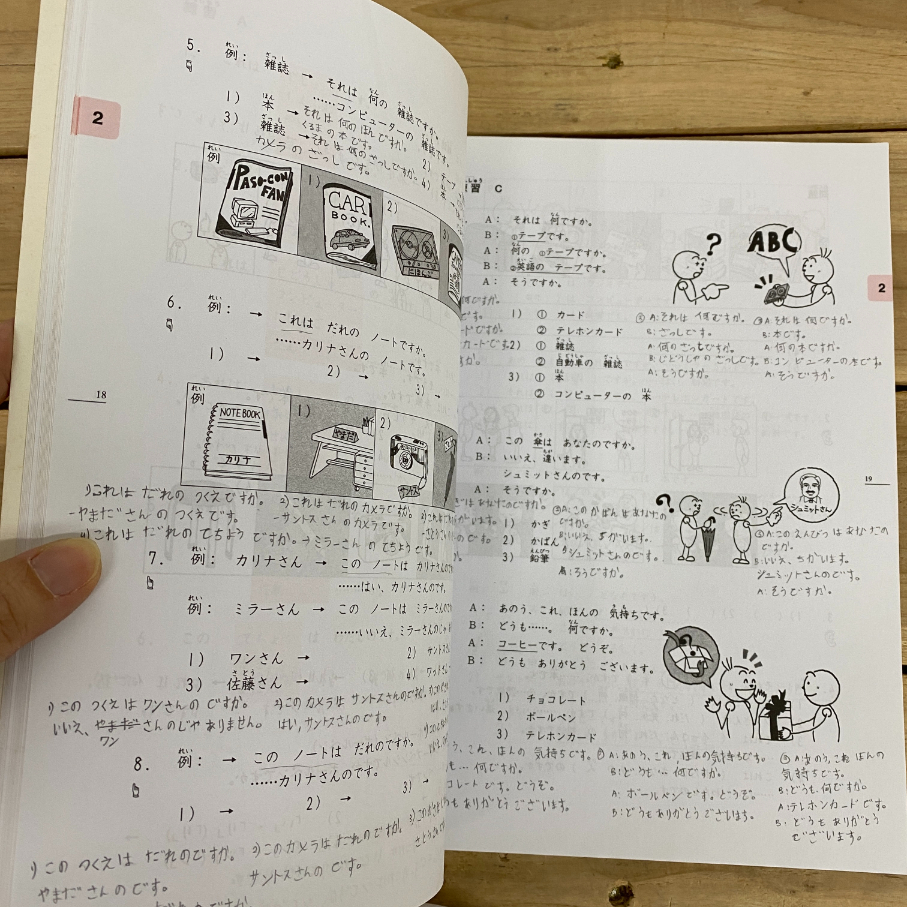 5. 例： 雑誌 → それは 何の 雑誌ですか。
……コンピューターの 雑誌です。
1) 本 → それは 何の ほんですか。
くるまの 本です。
2) テープ
3) 雑誌 → それは 何の ざっしですか。
4) 本
カメラ の ざっし です。
例
PASO-CON FAN
1)
CAR BOOK.
2)
にほんご
3)
6. 例： → これは だれの ノートですか。
……カリナさんの ノートです。
1) →
2) →
3) →
例
NOTE BOOK
カリナ
1)
やまだ
2)
サントス
3)
1)これは だれの つくえですか。
-やまださんの つくえです。
2)これは だれの カメラですか。
-サントスさんの カメラです。
これは だれの てちょう ですか。→ミラーさん の てちょう です。
7. 例： カリナさん → この ノートは カリナさん
……はい、カリナさんのです。
例： ミラーさん → この ノートは ミラーさんの
……いいえ、ミラーさんのじゃ
1) ワンさん →
2) サントス
3) 佐藤さん →
4) ワット
1)この つくえは ワンさんの ですか。
いいえ、さんのじゃ ありません。
ワン
2)この カメラは サントスさんのですか。
はい、サントスさんの です。
8. 例： → この ノートは だれのですか。
……カリナさんのです。
1) →
2) →
3) →
1)この つくえは だれのですか。
やまださんの です。
2)この カメラは だれの ですか。
サントスさんの です。
2
18
習 C
A： それは 何ですか。
B： ①テープです。
A： 何の ①テープですか。
B： ②英語の テープです。
A： そうですか。
1) ① カード
② テレホンカード
2) ① 雑誌
② 自動車の 雑誌
3) ① 本
② コンピューターの 本
?
ABC
A:それは 何ですか。
B:ざっしです。
A:何の ざっしですか。
B:じどうしゃの ざっしです。
A:そうですか。
③A:それは 何ですか。
B:本です。
A:何の本ですか。
B:コンピューターの本です。
A:そうですか。
A： この 傘は あなたのですか。
B： いいえ、違います。
シュミットさんのです。
A： そうですか。
1) かぎ
2) かばん
3) 鉛筆
A:この かばんは あなたの
ですか。
B:いいえ、ちがいます。
シュミットさんのです。
A:そうですか。
?
シュミットさん
③A:この えんぴつは あなたの
ですか。
B:いいえ、ちがいます。
シュミットさんのです。
A:そうですか。
A： あのう、これ、ほんの 気持ちです。
B： どうも……。 何ですか。
A： コーヒーです。 どうぞ。
B： どうも ありがとう ございます。
1) チョコレート
2) ボールペン
3) テレホンカード
これ、ほんの 気持ちです。
… 何ですか。
コレートです。どうぞ。
ありがとう ございます。
A:あのう、これ、ほんの気持ちです。
B:どうも…何ですか。
A: ボールペンです。どうぞ。
B:どうもありがとうございます。
③A:あのう、これ ほんの
気持ちです。
B:どうも、何ですか。
A:テレホンカードです。
B:どうも ありがとう
ございます。
2
19